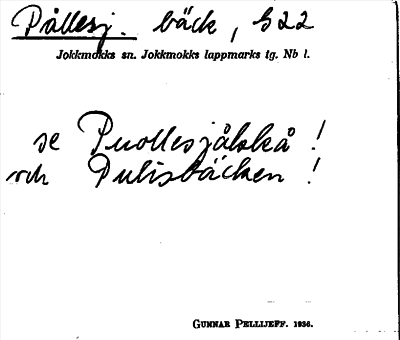 Pållesj. bäck, G22
Jokkmokks sn. Jokkmokks lappmarks tg. Nb l.
se Puollesjåkkå!
och Pulisbäcken!
GUNNAR PELLIJEFF. 1936.